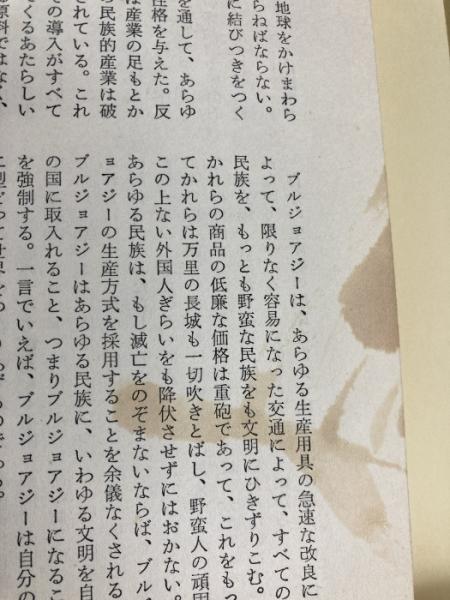 地球をかけまわら
らねばならない。
に結びつきをつく
を通して、あらゆ
性格を与えた。反
は産業の足もとか
ら民族的産業は破
されている。これ
の導入がすべて
てくるあたらしい
原料ではなく、
ブルジョアジーは、あらゆる生産用具の急速な改良に
よって、限りなく容易になった交通によって、すべての
民族を、もっとも野蛮な民族をも文明にひきずりこむ。
かれらの商品の低廉な価格は重砲であって、これをもっ
てかれらは万里の長城も一切吹きとばし、野蛮人の頑固
この上ない外国人ぎらいをも降伏させずにはおかない。
あらゆる民族は、もし滅亡をのぞまないならば、ブルジ
ョアジーの生産方式を採用することを余儀なくされる
ブルジョアジーはあらゆる民族に、いわゆる文明を自
の国に取入れること、つまりブルジョアジーになるこ
を強制する。一言でいえば、ブルジョアジーは自分の